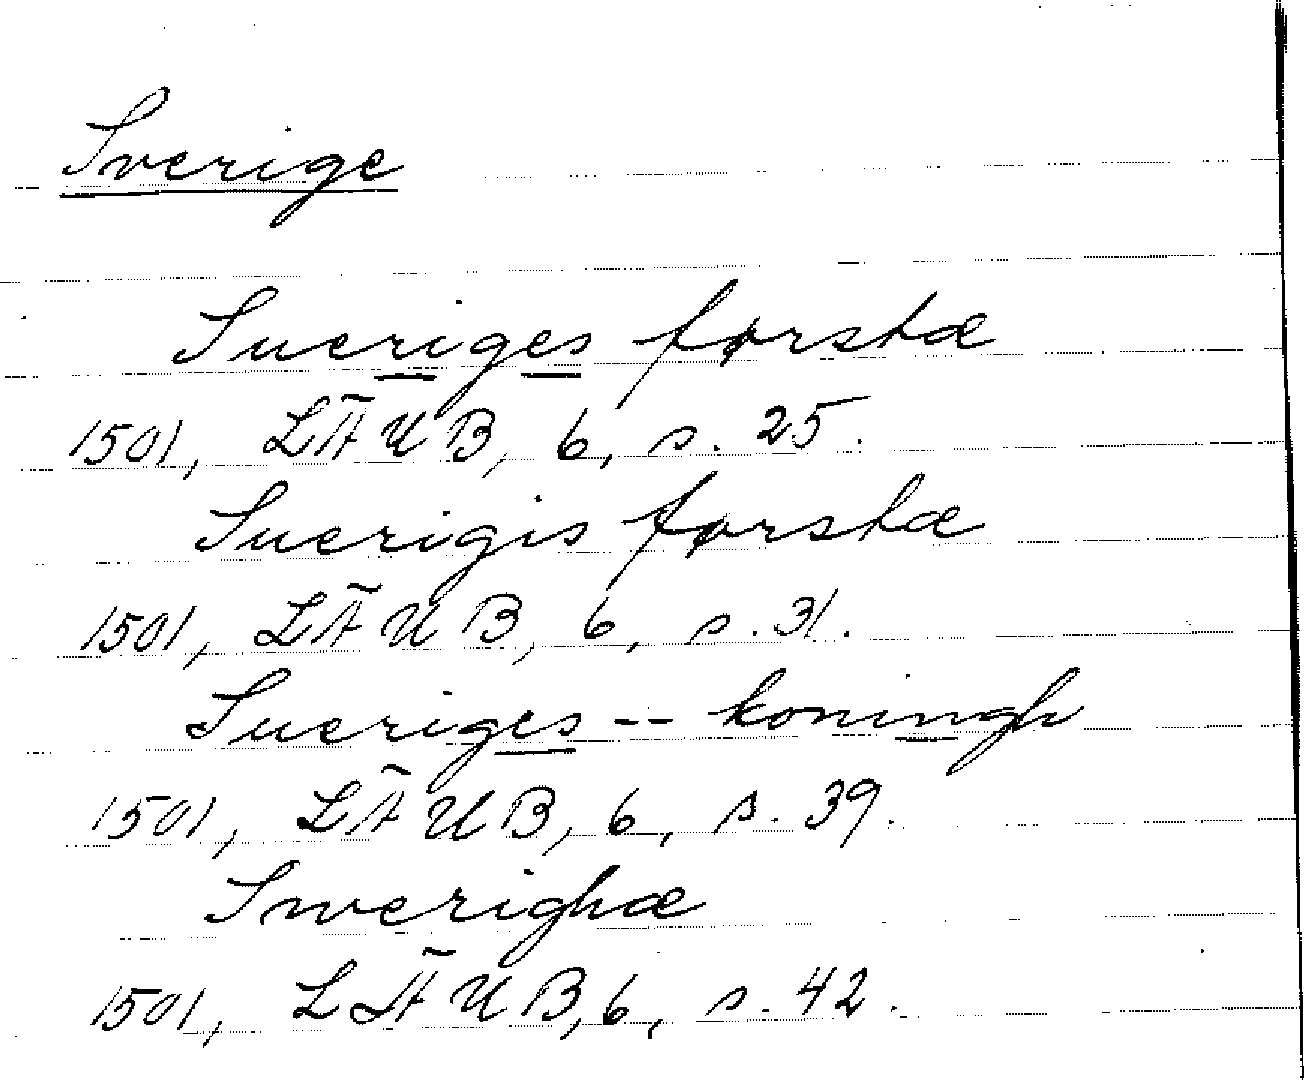 Sverige
Sueriges førstæ
1501, LÄUB, 6, s. 25.
Suerigis førstæ
1501, LÄUB, 6, s. 31.
Sueriges -- koningh
1501, LÄUB, 6, s. 39.
Swerighæ
1501, LÄUB, 6, s. 42.